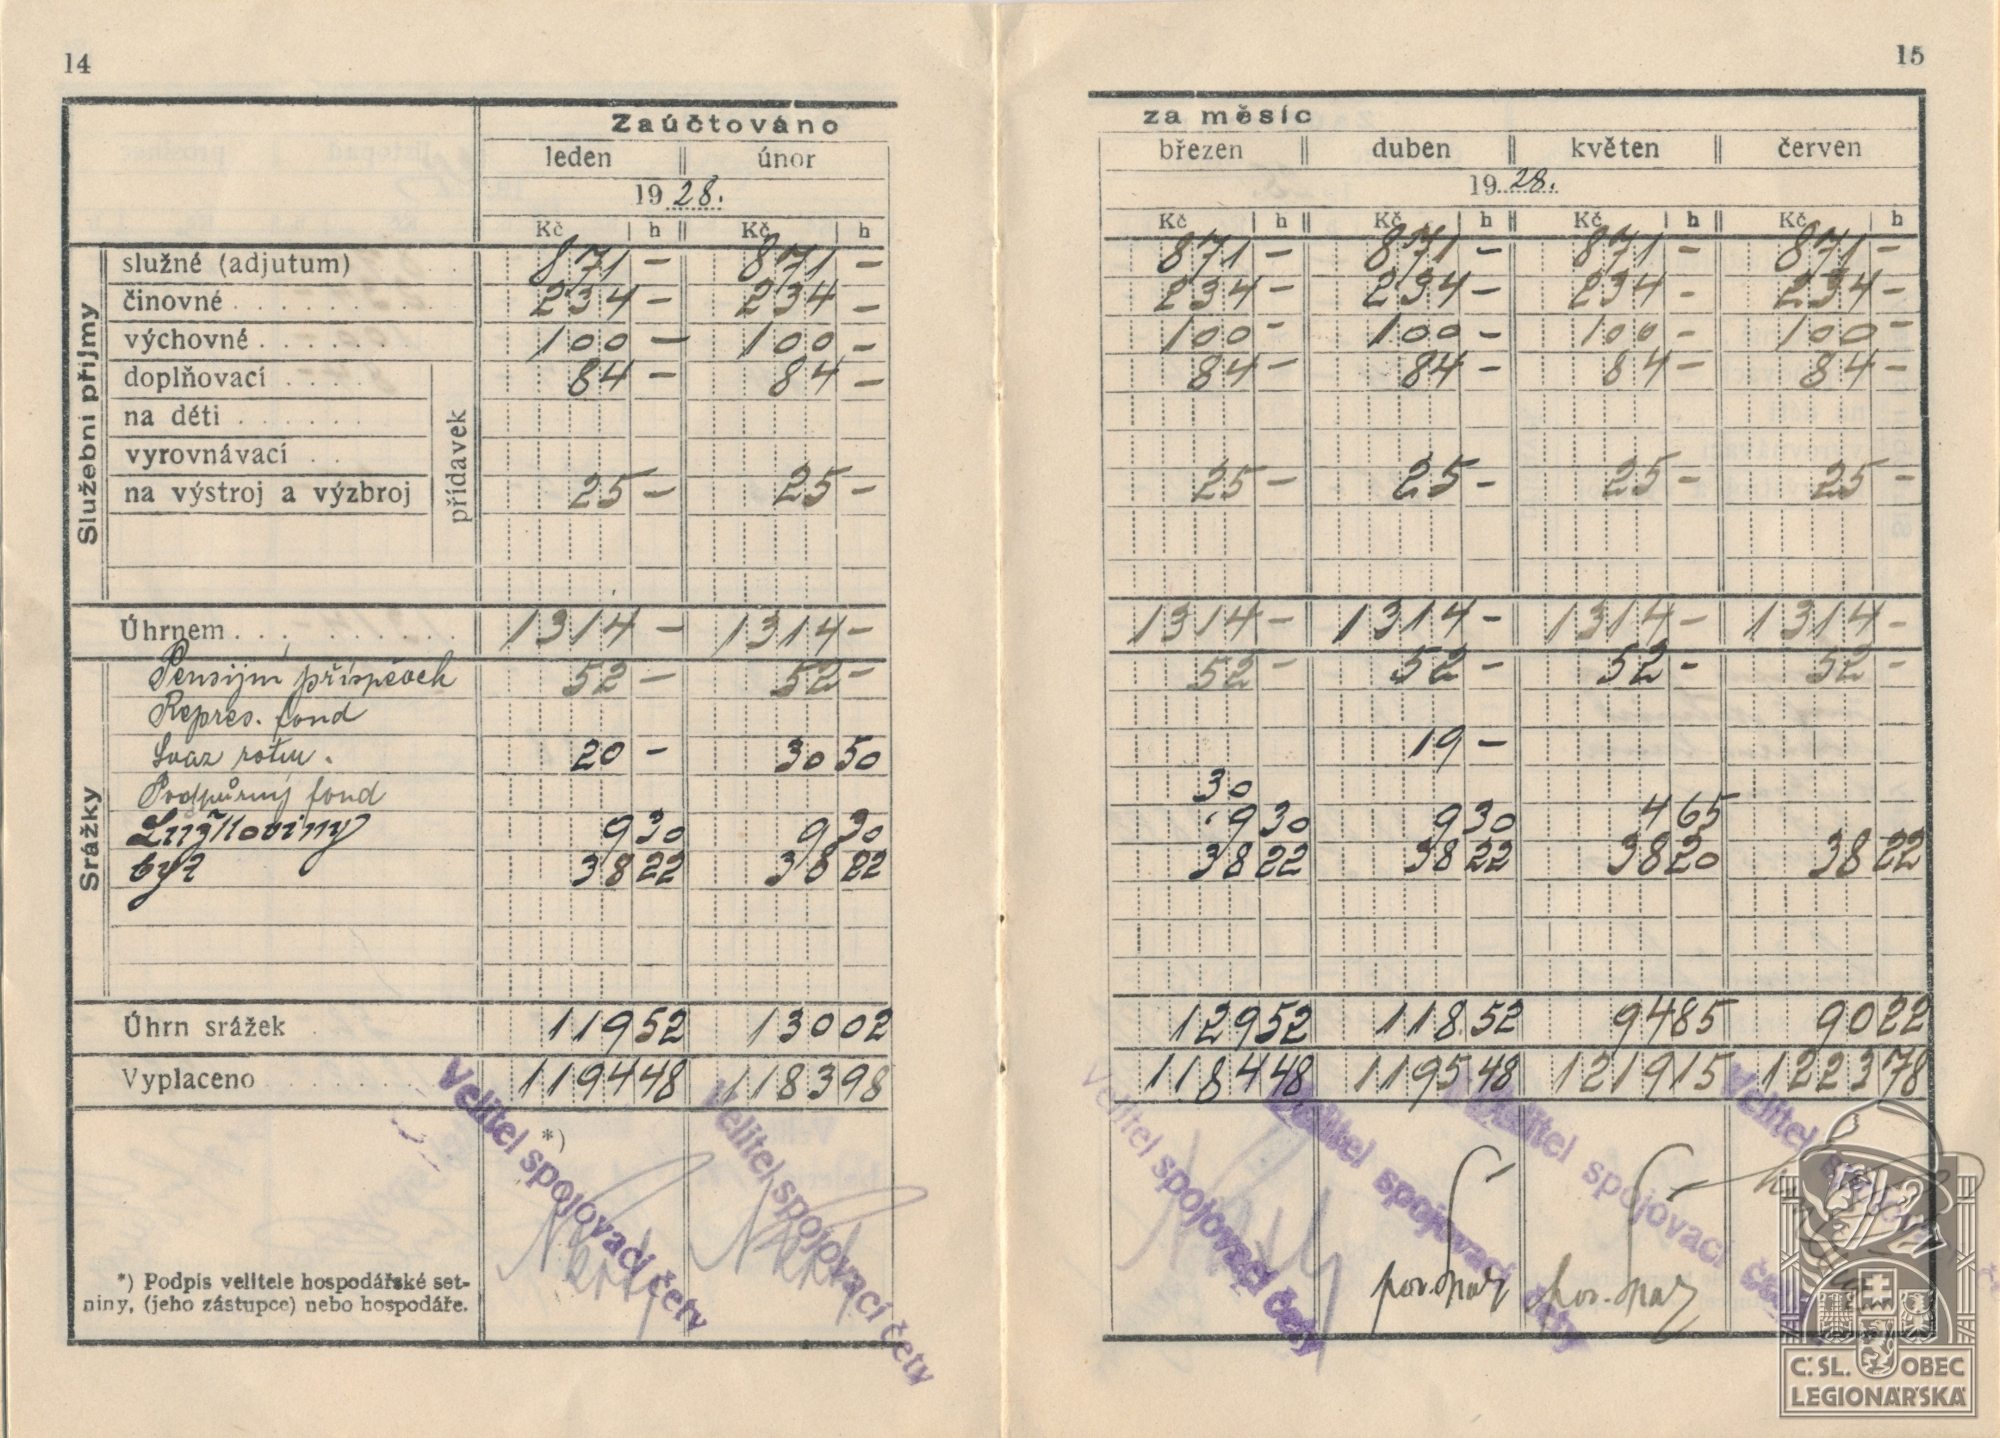 14
Zaúčtováno
leden únor
19 28.
Kč h Kč h
Služební příjmy
služné (adjutum) 871 — 871 —
činovné 234 — 234 —
výchovné 100 — 100 —
doplňovací 84 — 84 —
na děti
vyrovnávací
na výstroj a výzbroj 25 — 25 —
přídavek
Úhrnem 1314 — 1314 —
Srážky
Pensijní příspěvek 52 — 52 —
Repres. fond
Svaz rotm. 20 — 30 50
Podpůrný fond
Lužkoviny 9 30 9 30
byt 38 22 38 22
Úhrn srážek 119 52 130 02
Vyplaceno 1194 48 1183 98
*)
Velitel spojovací čety
Velitel spojovací čety
*) Podpis velitele hospodářské set-
niny, (jeho zástupce) nebo hospodáře.
15
za měsíc
březen duben květen červen
19 28.
Kč h Kč h Kč h Kč h
871 — 871 — 871 — 871 —
234 — 234 — 234 - 234 —
100 - 100 — 100 - 100 —
84 — 84 — 84 — 84 —
25 — 25 — 25 — 25 —
1314 — 1314 — 1314 — 1314 —
52 — 52 — 52 — 52 —
19 —
30
9 30 9 30 4 65
38 22 38 22 38 20 38 22
129 52 118 52 94 85 90 22
1184 48 1195 48 1219 15 1223 78
Velitel spojovací čety
Velitel spojovací čety
Velitel spojovací čety
Velitel
Č. SL. OBEC
LEGIONÁŘSKÁ